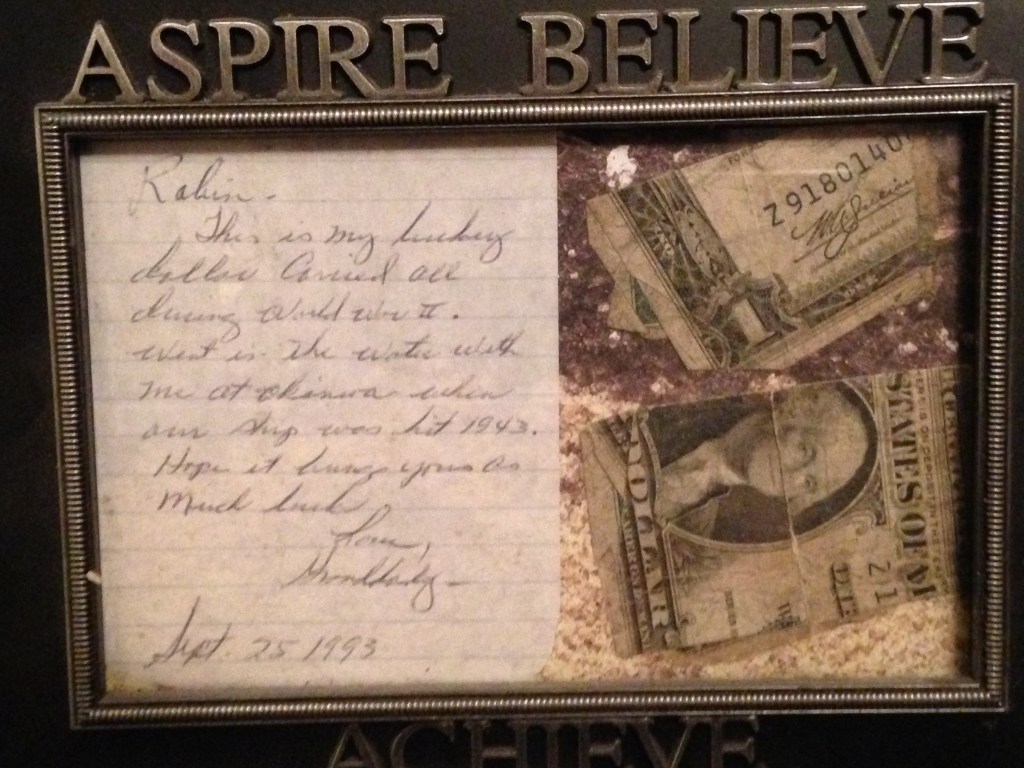 ASPIRE BELIEVE
Robin -
This is my luckey
dollar Carried all
during World War II.
Went in the water with
me at okinawa when
our ship was hit 1943.
Hope it brings you as
Much luck
Love,
Granddady -
Sept. 25 1993
Z9180140
STATES OF AM
Z 1
ACHIEVE